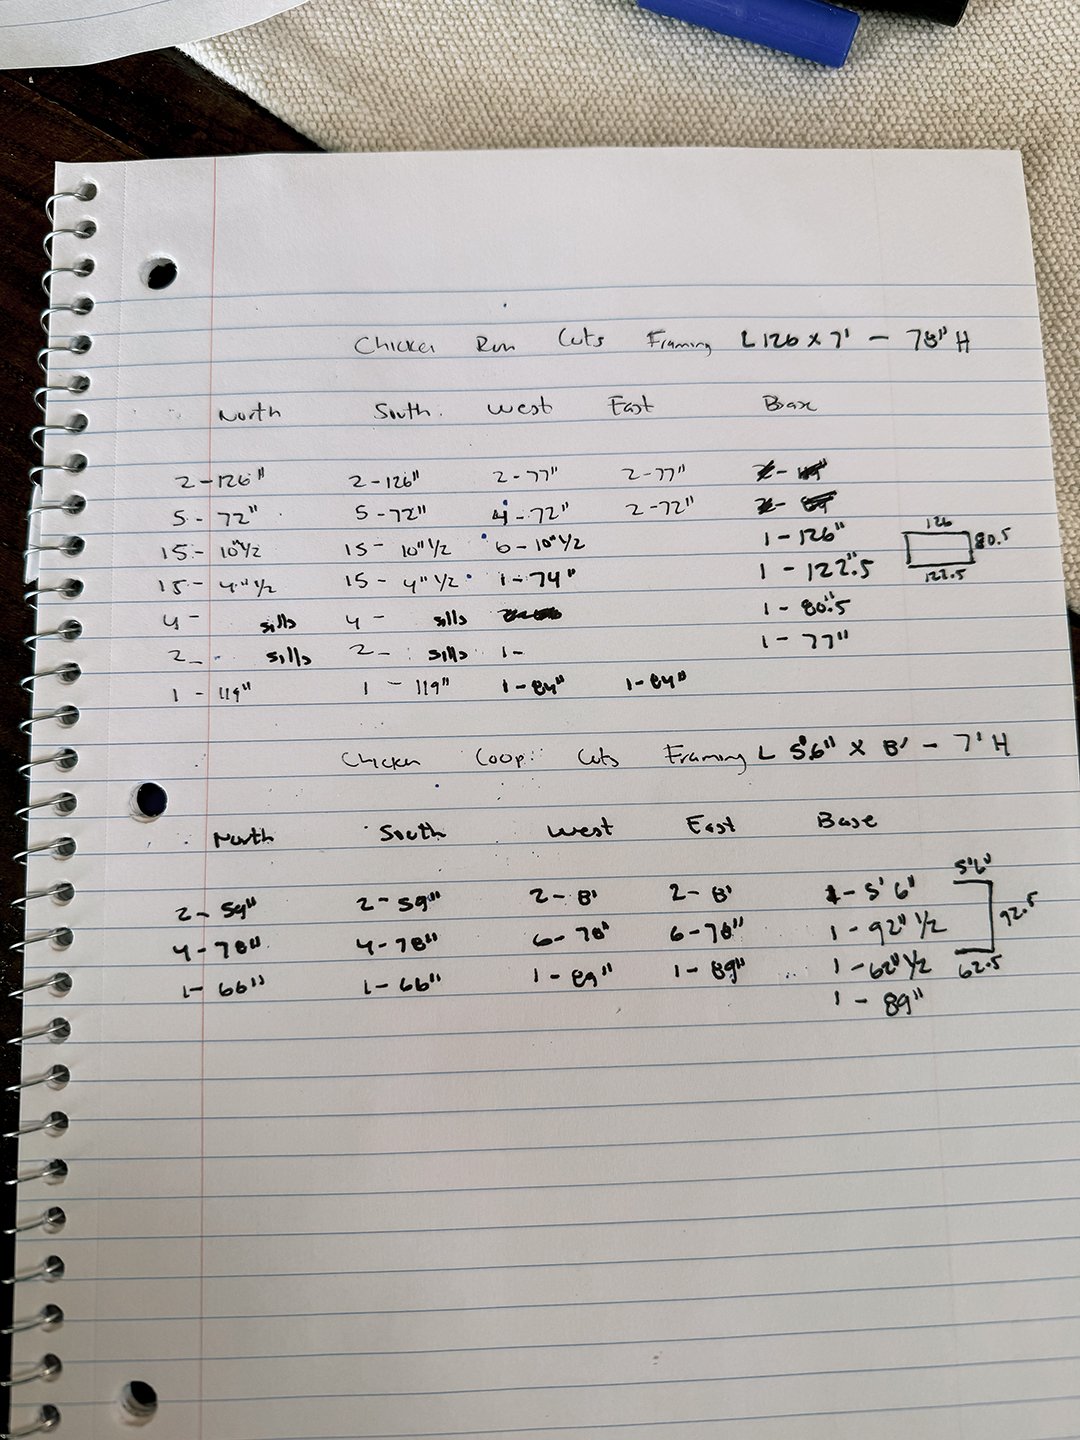 Chicken Run Cuts Framing L 126 x 7' - 78" H
North South. West East Base
2 - 126" 2 - 126" 2 - 77" 2 - 77"
5 - 72" 5 - 72" 4 - 72" 2 - 72"
15 - 10" 1/2 15 - 10" 1/2 6 - 10" 1/2 1 - 126" 126 80.5
15 - 4" 1/2 15 - 4" 1/2 1 - 74" 1 - 122".5 122.5
4 - sills 4 - sills 1 - 80".5
2 - sills 2 - sills 1 - 1 - 77"
1 - 119" 1 - 119" 1 - 84" 1 - 84"
Chicken Coop: Cuts Framing L 5'6" x 8' - 7' H
North South West East Base
2 - 59" 2 - 59" 2 - 8' 2 - 8' 1 - 5' 6" 5'6"
4 - 78" 4 - 78" 6 - 78" 6 - 78" 1 - 92" 1/2 92.5
1 - 66" 1 - 66" 1 - 89" 1 - 89" 1 - 62" 1/2 62.5
1 - 89"